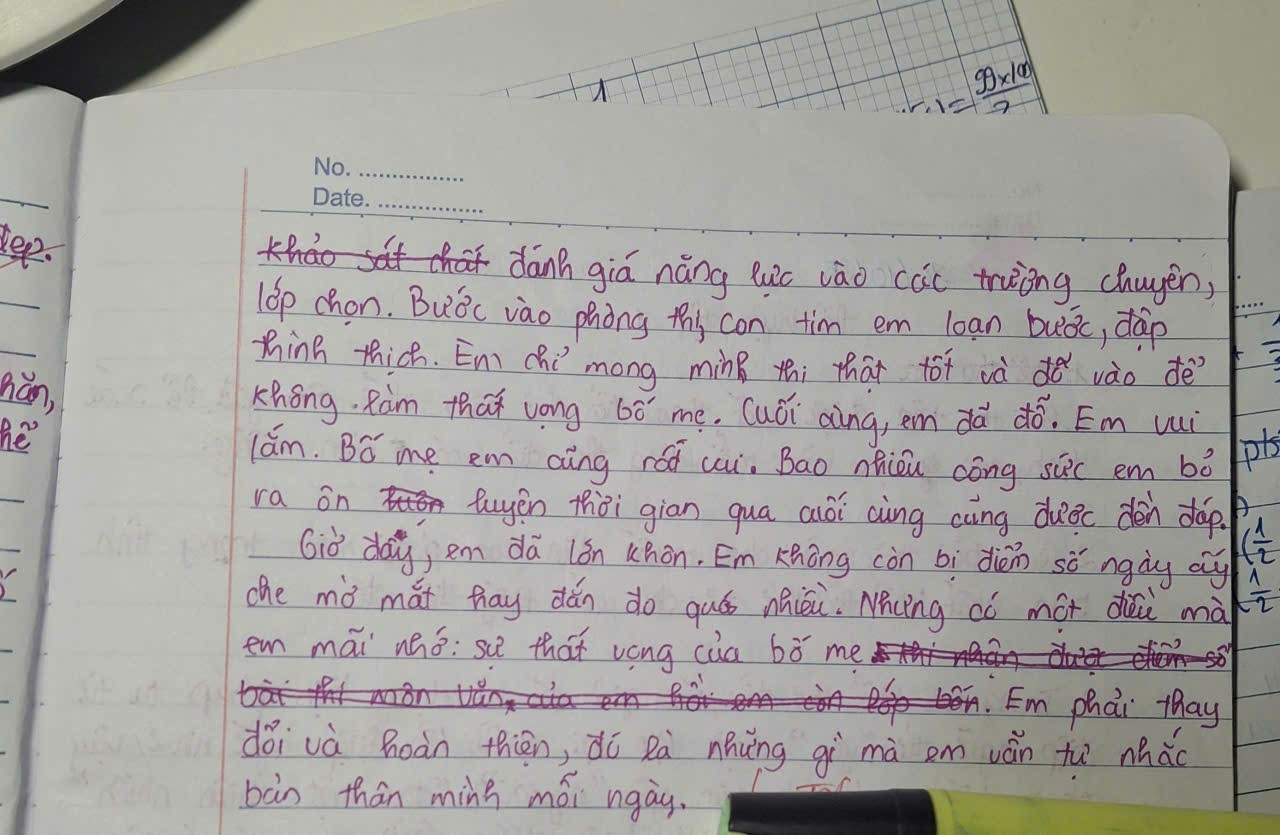 99x100
2
No. ................
Date. ................
khảo sát chất đánh giá năng lực vào các trường chuyên,
lớp chọn. Bước vào phòng thi, con tim em loạn bước, đập
thình thịch. Em chỉ mong mình thi thật tốt và đỗ vào để
không làm thất vọng bố mẹ. Cuối cùng, em đã đỗ. Em vui
lắm. Bố mẹ em cũng rất vui. Bao nhiêu công sức em bỏ
ra ôn luyện thời gian qua cuối cùng cũng được đền đáp.
Giờ đây, em đã lớn khôn. Em không còn bị điểm số ngày ấy
che mờ mắt hay đắn đo quá nhiều. Nhưng có một điều mà
em mãi nhớ: sự thất vọng của bố mẹ khi nhận được điểm số
bài thi môn văn của em hồi em còn lớp bốn. Em phải thay
đổi và hoàn thiện, đó là những gì mà em vẫn tự nhắc
bản thân mình mỗi ngày.